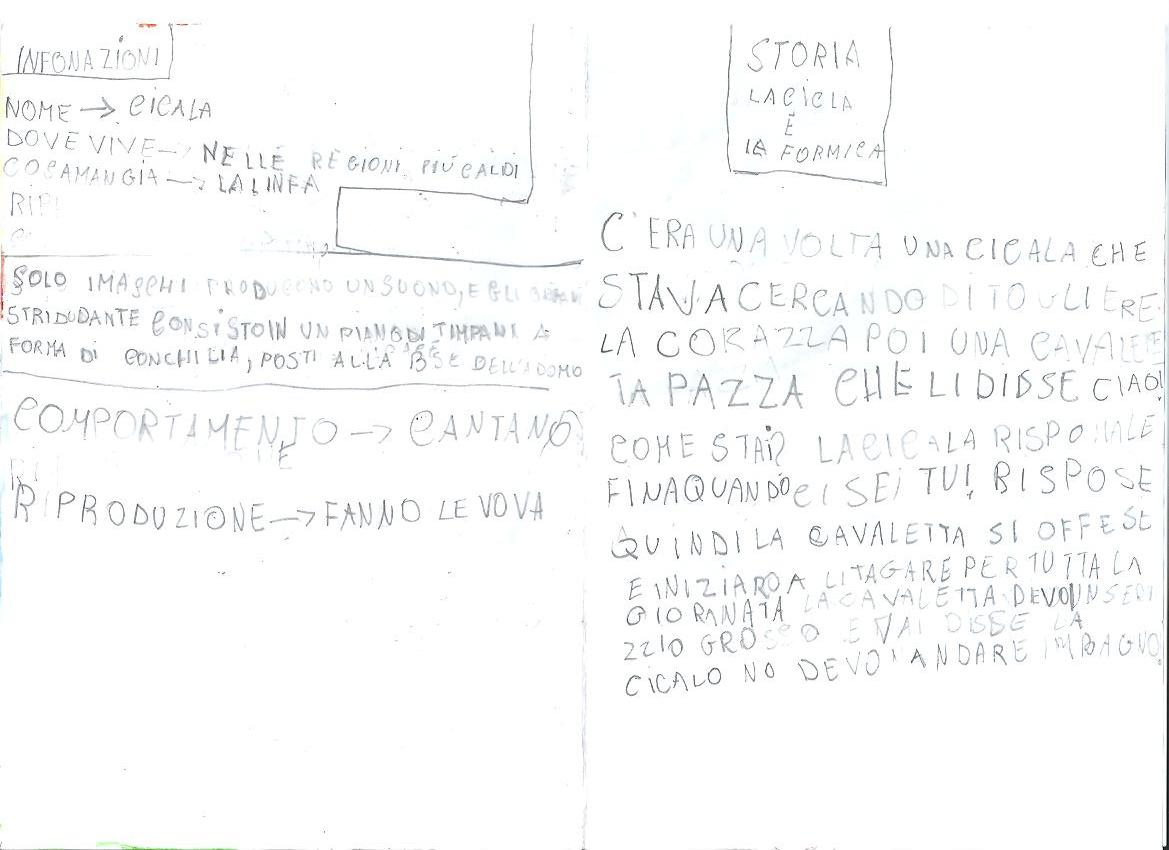 INFONAZIONI
NOME → CICALA
DOVE VIVE → NELLE REGIONI PIÚ CALDI
COSAMANGIA → LA LINFA
RIP
SOLO IMASCHI PRODUCONO UN SUONO, E GLI
STRIDUDANTE CONSISTOIN UN PIANO DI TIMPANI A
FORMA DI CONCHILIA, POSTI ALLA BSE DELL'ADOMO
COMPORTAMENTO → CANTANO
RIPRODUZIONE → FANNO LE VOVA
STORIA
LA CICLA
E
LA FORMICA
C'ERA UNA VOLTA UNA CICALA CHE
STAVA CERCANDO DI TOGLIERE
LA CORAZZA POI UNA CAVALE
TA PAZZA CHE LI DISSE CIAO!
COME STAI? LA CICALA RISPO MALE
FINAQUANDO CI SEI TU! RISPOSE
QUINDI LA CAVALETTA SI OFFESE
E INIZIARO A LITAGARE PER TUTTA LA
GIORNATA LA CAVALETTA DEVO UN SERI
ZZIO GROSSO E VAI DISSE LA
CICALO NO DEVO ANDARE IMBAGNO!